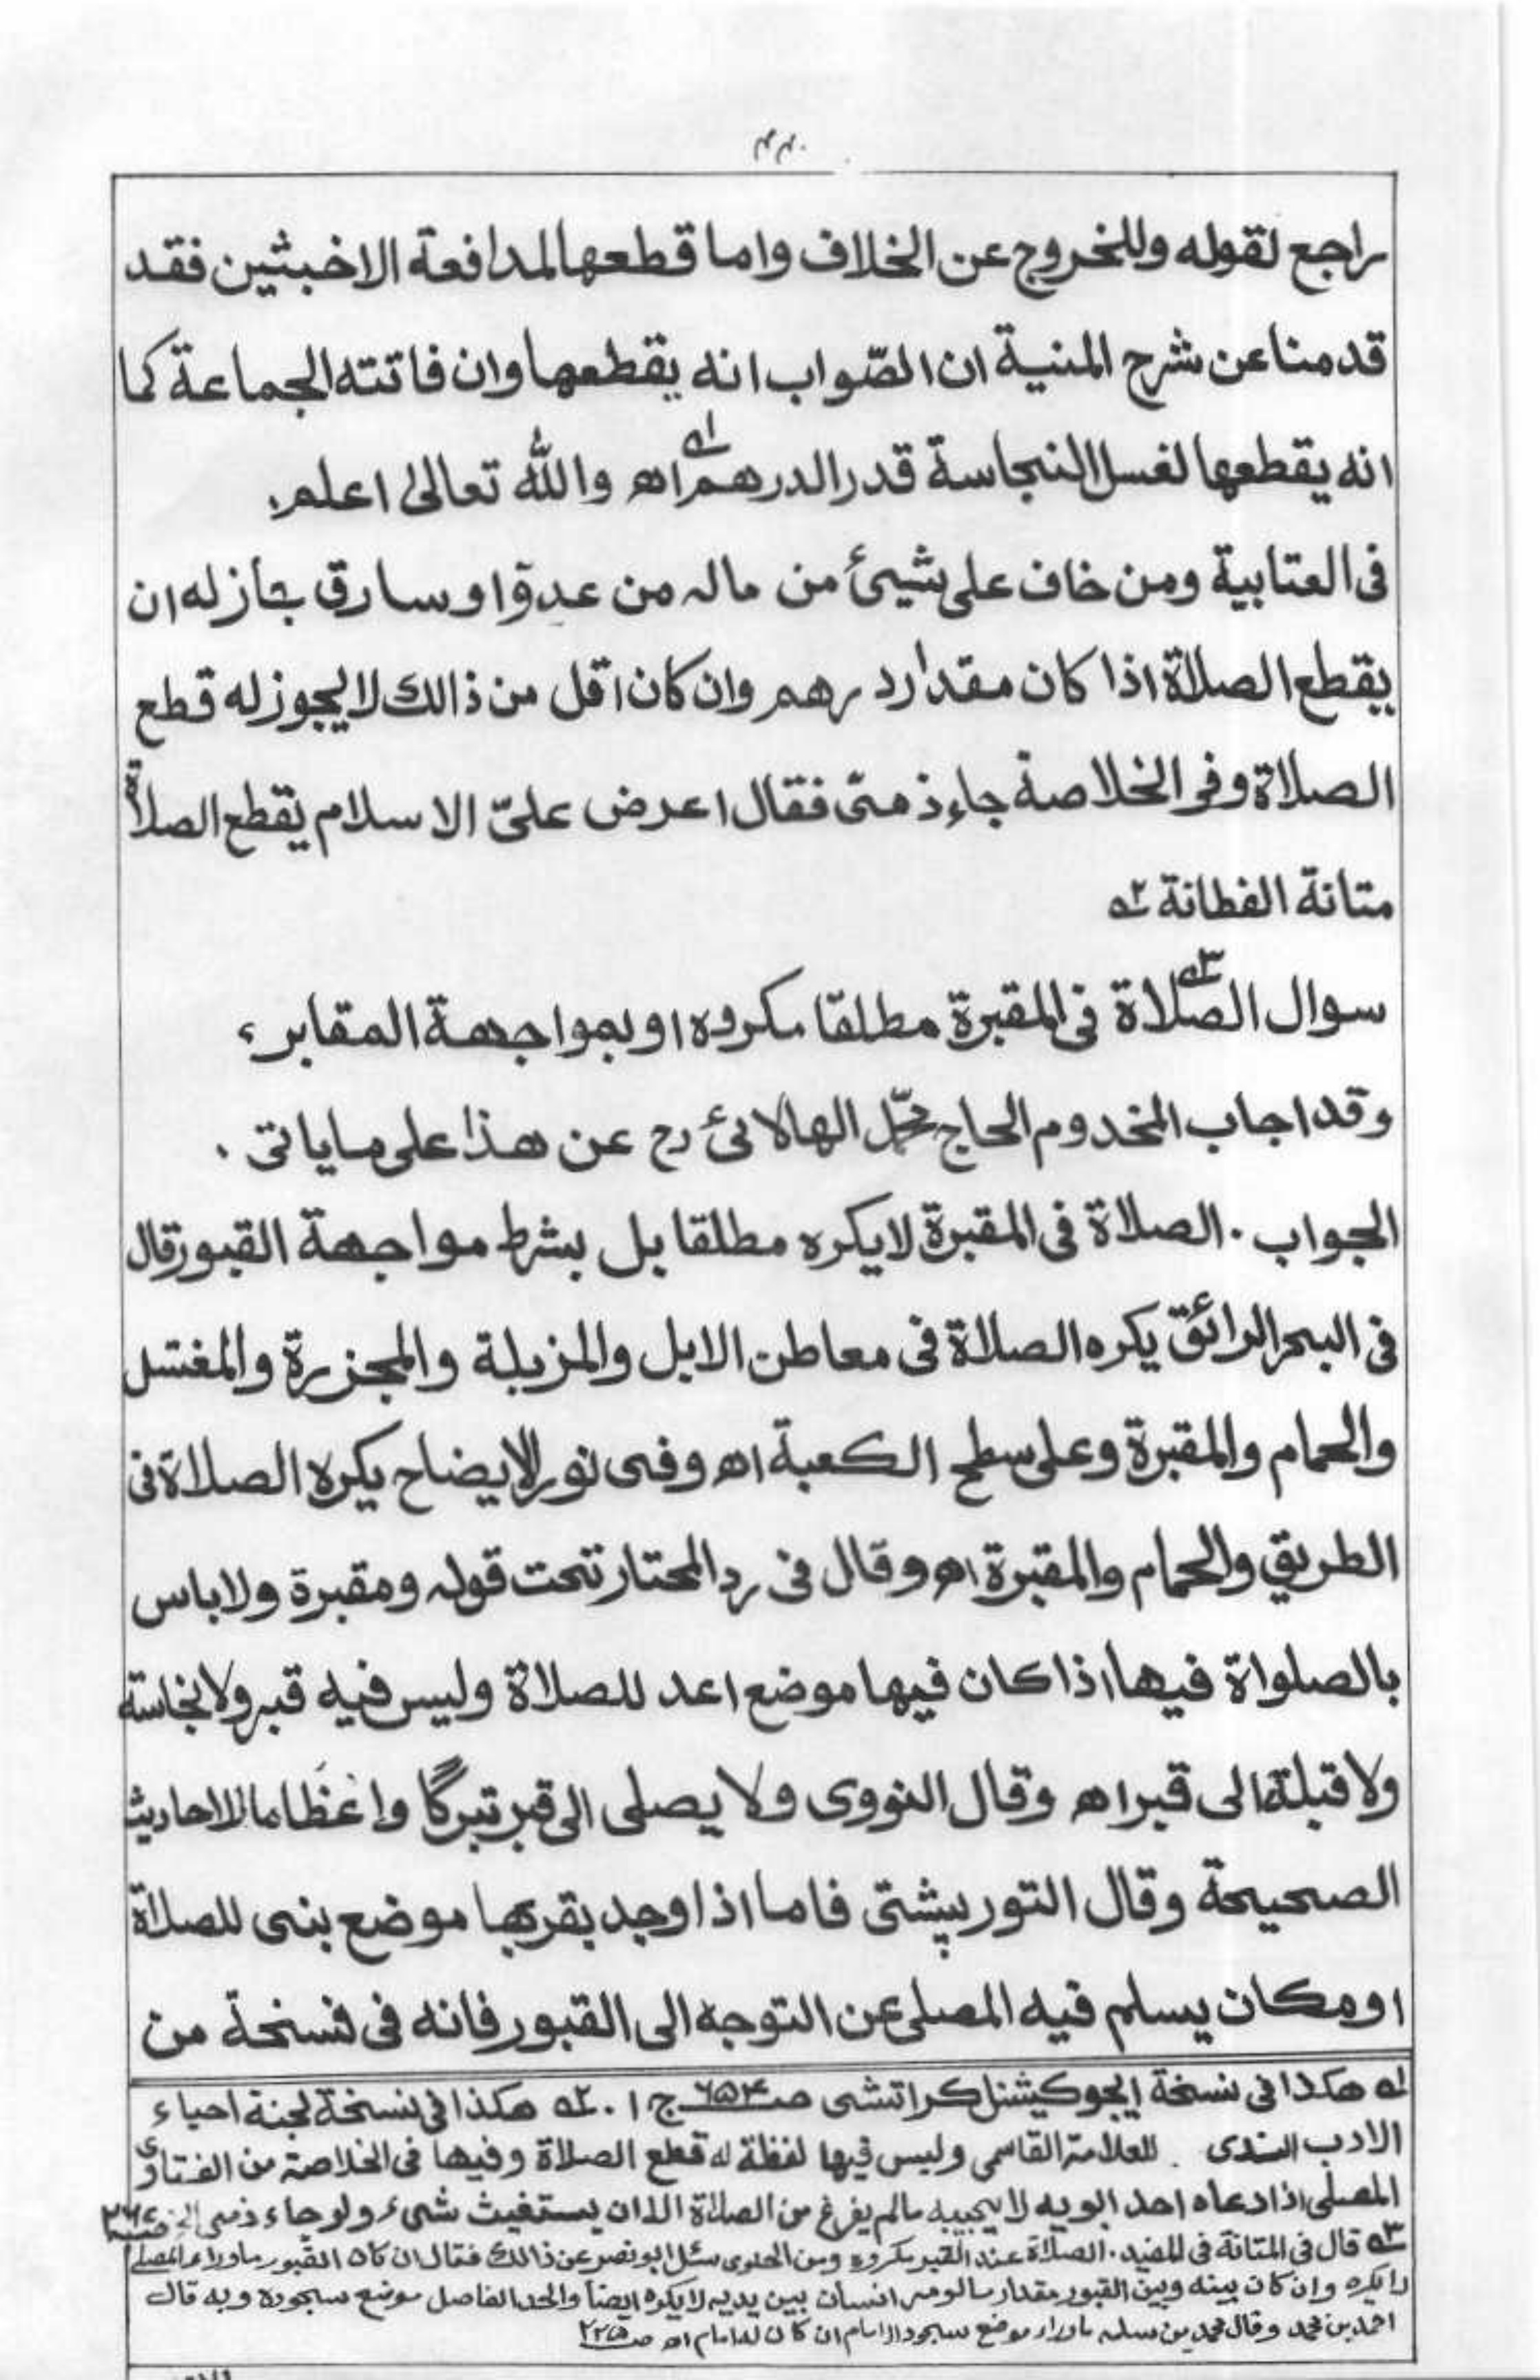 ۴۴۰
راجع لقوله وللخروج عن الخلاف واما قطعها لمدافعة الاخبثين فقد
قدمنا عن شرح المنية ان الصّواب انه يقطعها وان فاتته الجماعة كما
انه يقطعها لغسل النجاسة قدر الدرهم اھ ۱ والله تعالیٰ اعلم.
فى العتابية ومن خاف على شيئ من ماله من عدوّ او سارق جاز له ان
يقطع الصلاة اذا كان مقدار درهم وان كان اقل من ذالك لا يجوز له قطع
الصلاة وفى الخلاصة جاء ذمىّ فقال اعرض علىّ الاسلام يقطع الصلاة
متانة الفطانة ۲ه
سوال الصّلاة ۳ فى المقبرة مطلقا مكروه او بمواجهة المقابر،
وقد اجاب المخدوم الحاج محمّد الهالائى رح عن هذا على ما ياتى .
الجواب . الصلاة فى المقبرة لا يكره مطلقا بل بشرط مواجهة القبور قال
فى البحر الرائق يكره الصلاة فى معاطن الابل والمزبلة والمجزرة والمغتسل
والحمام والمقبرة وعلى سطح الكعبة اھ وفى نور الايضاح يكره الصلاة فى
الطريق والحمام والمقبرة اھ وقال فى رد المحتار تحت قوله ومقبرة ولا باس
بالصلواة فيها اذا كان فيها موضع اعد للصلاة وليس فيه قبر ولا نجاسة
ولا قبلة الى قبر اھ وقال النووى ولا يصلى الى قبر تبركًا واعظاما للاحاديث
الصحيحة وقال التور بپشتى فاما اذا وجد بقربها موضع بنى للصلاة
او مكان يسلم فيه المصلى عن التوجه الى القبور فانه فى فسخة من
۱ه هكذا فى نسخة ايجوكيشنل كراتشى صـ۶۵۴ ج ۱ . ۲ه هكذا فى نسخة لجنة احياء
الادب السندى . للعلامة القاسمى وليس فيها لفظة له قطع الصلاة وفيها فى الخلاصة من الفتاوى
المصلى اذا دعاه احد ابويه لا يجيبه مالم يفرغ من الصلاة الا ان يستغيث شئ ولو جاء ذمى الخ
۳ه قال فى المتانة فى المفيد . الصلاة عند القبر مكروه ومن الحاوى سئل ابو نصر عن ذالك فقال ان كان القبور ماوراء المصلى
لا يكره وان كان بينه وبين القبور مقدار مالو مر انسان بين يديه لا يكره ايضا والحد الفاصل موضع سجوده وبه قال
احمد بن محمد وقال محمد بن سلمه ماوراء موضع سجود الامام ان كان له امام اھ